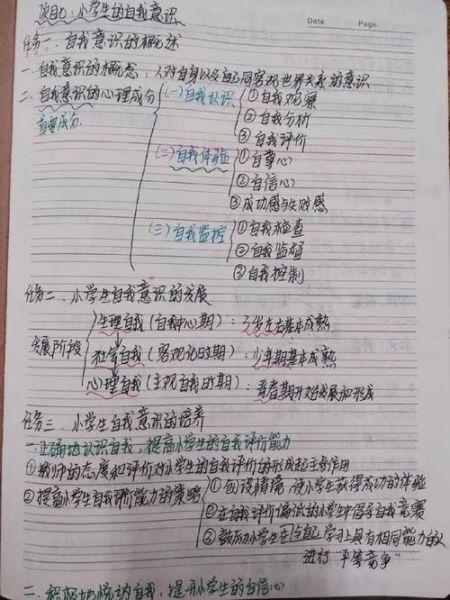 项目七：小学生的自我意识
Date.    Page.
任务一．自我意识的概述
一．自我意识的概念：人对自身以及自己同客观世界关系的意识
二．自我意识的心理成分
(一)自我认识
①自我观察
②自我分析
③自我评价
重要成分
(二)自我体验
①自尊心
②自信心
③成功感与失败感
(三)自我监控
①自我检查
②自我监督
③自我控制
任务二．小学生自我意识的发展
发展阶段
生理自我(自我中心期)：3岁左右基本成熟
社会自我(客观化时期)：少年期基本成熟
心理自我(主观自我时期)：青春期开始发展和形成
任务三．小学生自我意识的培养
一.正确地认识自我，提高小学生的自我评价能力
①教师的态度和评价对小学生的自我评价的形成起主导作用
②提高小学生自我评价能力的策略
①创设情境，使小学生获得成功的体验
②在自我评价偏低的小学生中倡导自我竞赛
③鼓励小学生在与自己学习上具有相同能力的人
进行“平等竞争”
二．积极地悦纳自我，提升小学生的自信心